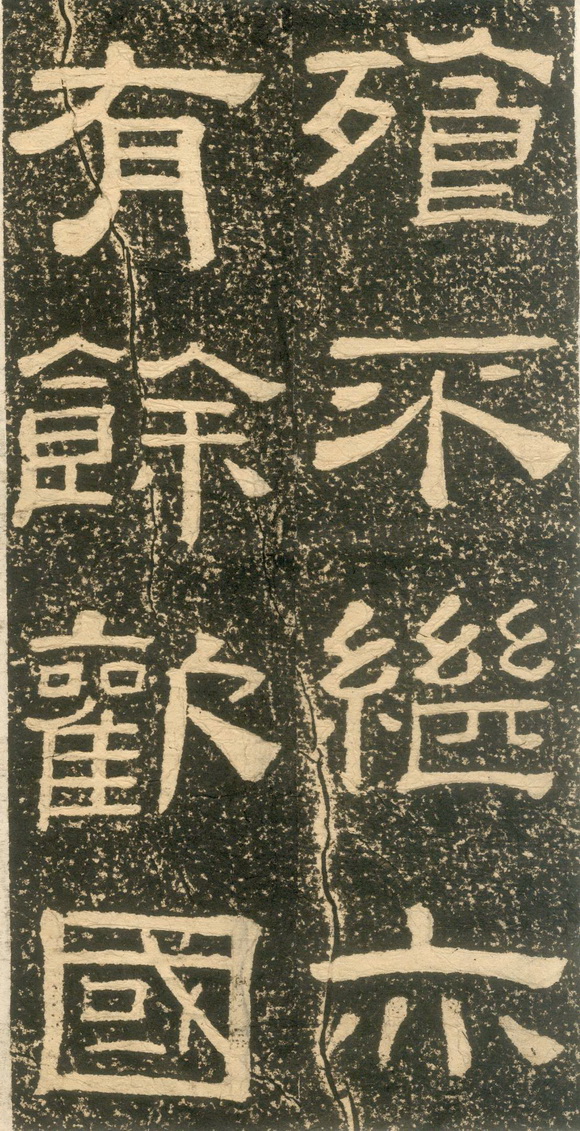 飱不繼亦
有餘歡國